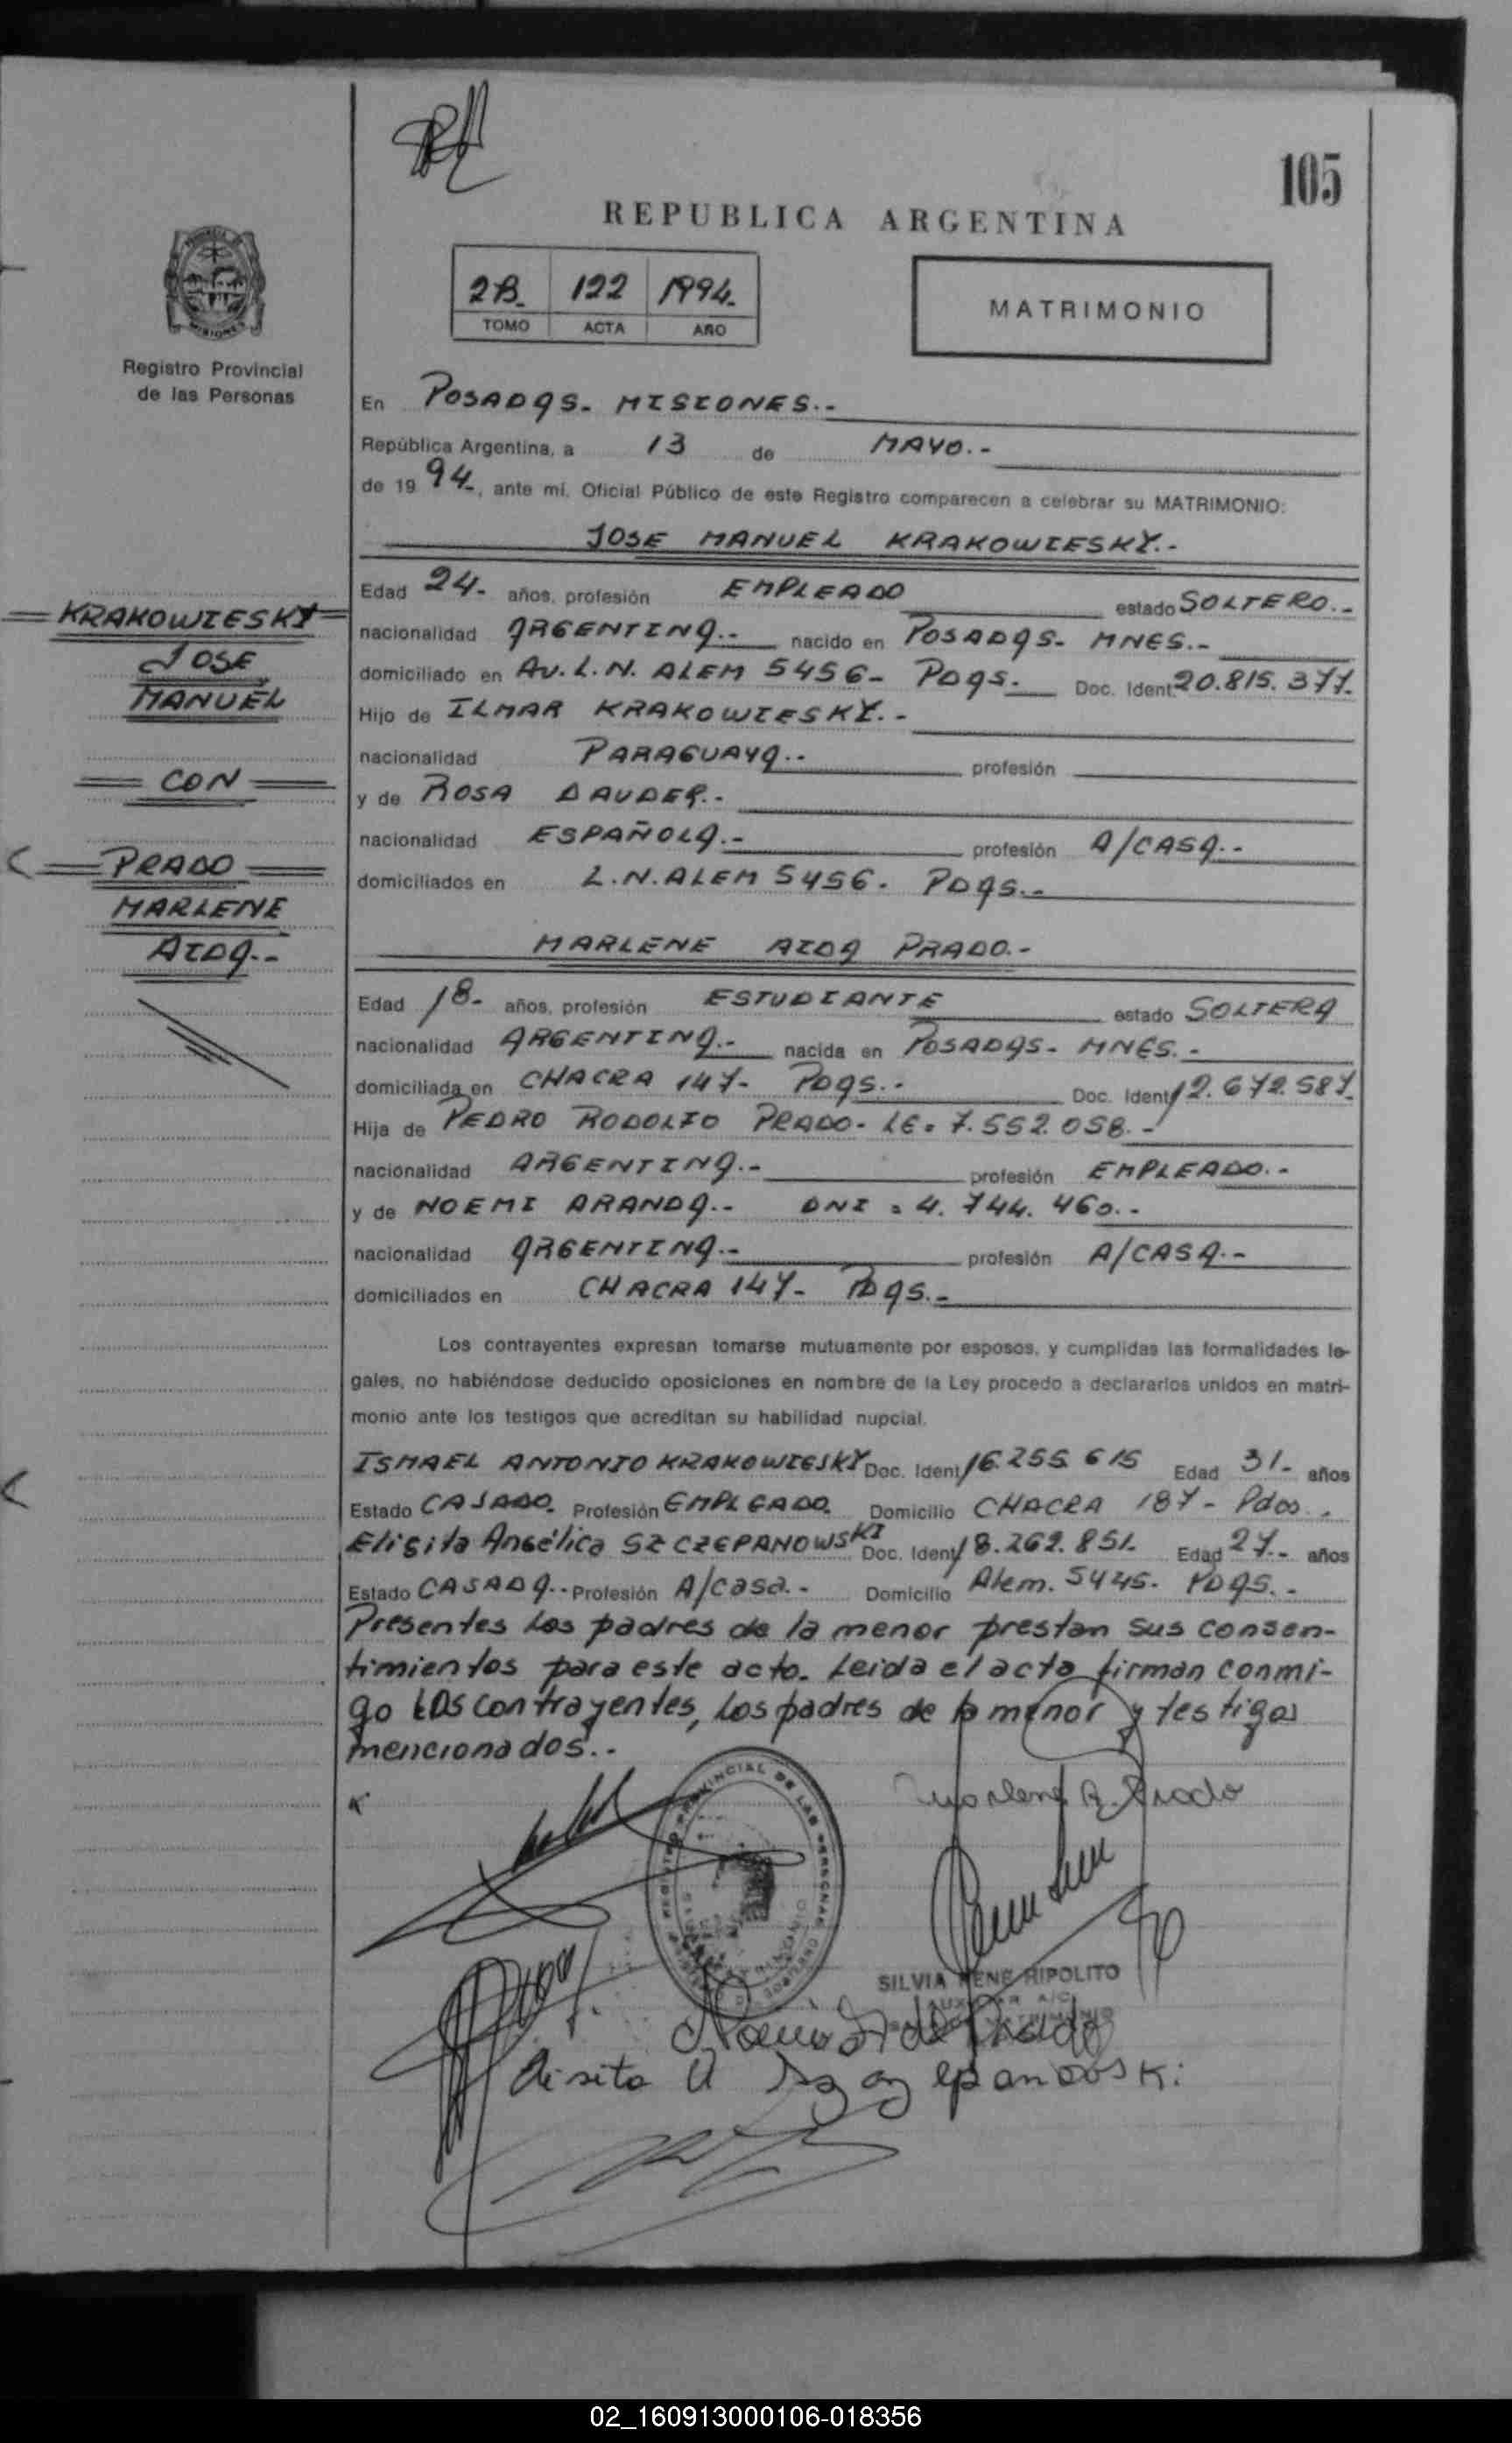 105
REPUBLICA ARGENTINA
2B. 122 1994.
TOMO ACTA AÑO
MATRIMONIO
PROVINCIA DE
MISIONES
Registro Provincial
de las Personas
En POSADAS- MISIONES.-
República Argentina, a 13 de MAYO.-
de 19 94-, ante mí, Oficial Público de este Registro comparecen a celebrar su MATRIMONIO:
JOSE MANUEL KRAKOWIESKY.-
KRAKOWIESKY
JOSE
MANUEL
CON
PRADO
MARLENE
AIDA.-
Edad 24- años, profesión EMPLEADO estado SOLTERO.-
nacionalidad ARGENTINA.- nacido en POSADAS- MNES.-
domiciliado en AV. L.N. ALEM 5456- PDAS.- Doc. Ident. 20.815.377.
Hijo de ILMAR KRAKOWIESKY.-
nacionalidad PARAGUAYA.- profesión
y de ROSA DAUDER.-
nacionalidad ESPAÑOLA.- profesión A/CASA.-
domiciliados en L.N.ALEM 5456. PDAS.-
MARLENE AIDA PRADO.-
Edad 18- años, profesión ESTUDIANTE estado SOLTERA
nacionalidad ARGENTINA.- nacida en POSADAS- MNES.-
domiciliada en CHACRA 147- PDAS.- Doc. Ident. 12.672.587.
Hija de PEDRO RODOLFO PRADO- LE= 7.552.058.-
nacionalidad ARGENTINA.- profesión EMPLEADO.-
y de NOEMI ARANDA.- DNI = 4.744.460.-
nacionalidad ARGENTINA.- profesión A/CASA.-
domiciliados en CHACRA 147- PDAS.-
Los contrayentes expresan tomarse mutuamente por esposos, y cumplidas las formalidades le-
gales, no habiéndose deducido oposiciones en nombre de la Ley procedo a declararlos unidos en matri-
monio ante los testigos que acreditan su habilidad nupcial.
ISMAEL ANTONIO KRAKOWIESKY Doc. Ident. 16.255.615 Edad 31- años
Estado CASADO. Profesión EMPLEADO. Domicilio CHACRA 187- Pdas.
Elisita Angélica SZCZEPANOWSKI Doc. Ident. 18.262.851. Edad 27.- años
Estado CASADA.- Profesión A/casa.- Domicilio Alem. 5445. PDAS.-
Presentes Los padres de la menor prestan sus consen-
timientos para este acto. Leida el acta firman conmi-
go LOS contrayentes, Los padres de la menor y testigos
mencionados.-
Marlene A. Prado
SILVIA RENE HIPOLITO